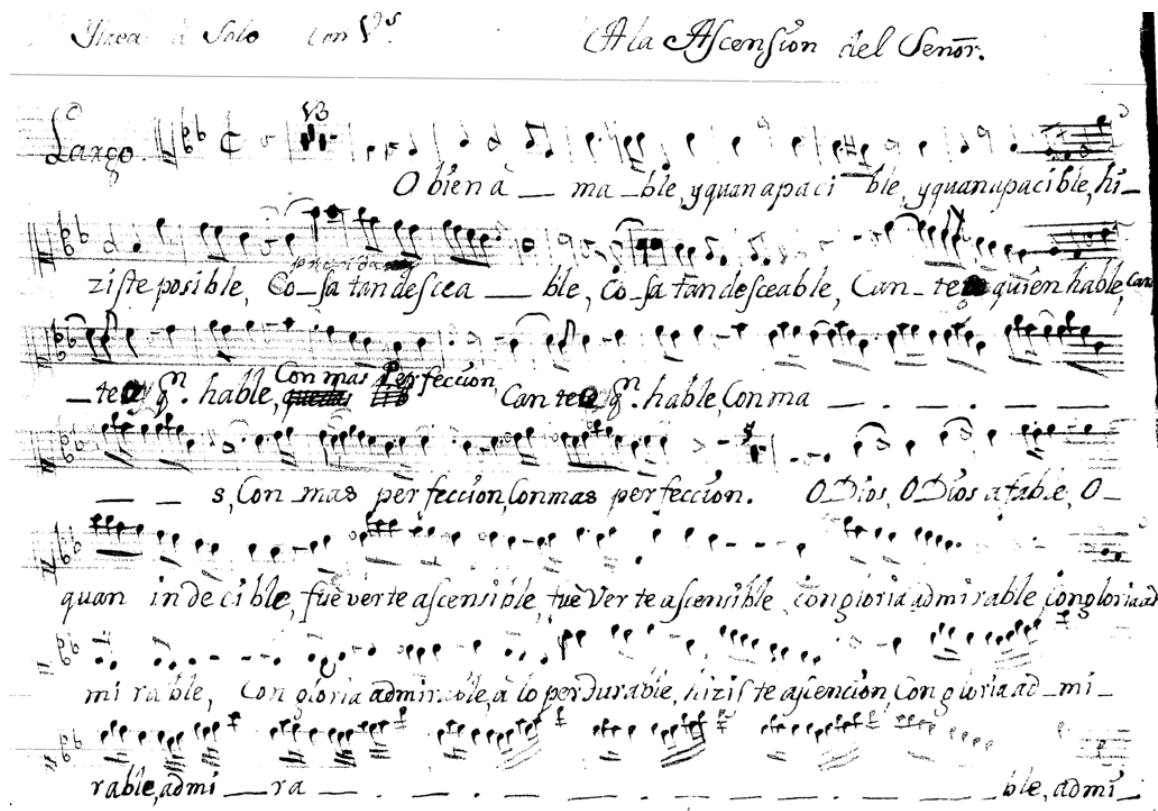 à Solo con Vs. A la Ascension del Señor.
Largo.
O bien à — ma — ble, y quan apaci ble, y quan apacible, hi—
ziste posible, Co—sa tan desea — ble, co—sa tan deseable, Can—te quien hable, can
—te qn. hable, Con mas Perfeccion, Can te qn. hable, Con ma — . — . — . —
— — s, Con mas perfeccion, Con mas perfeccion. O Dios, O Dios afable, O—
quan indecible, fuè verte ascensible, fuè Verte ascensible con gloria admirable, con gloria ad
mi rable, con gloria admirable, à lo perdurable, hiziste asencion, Con gloria ad—mi—
rable, admi — ra — . — . — . — . — ble, admi—